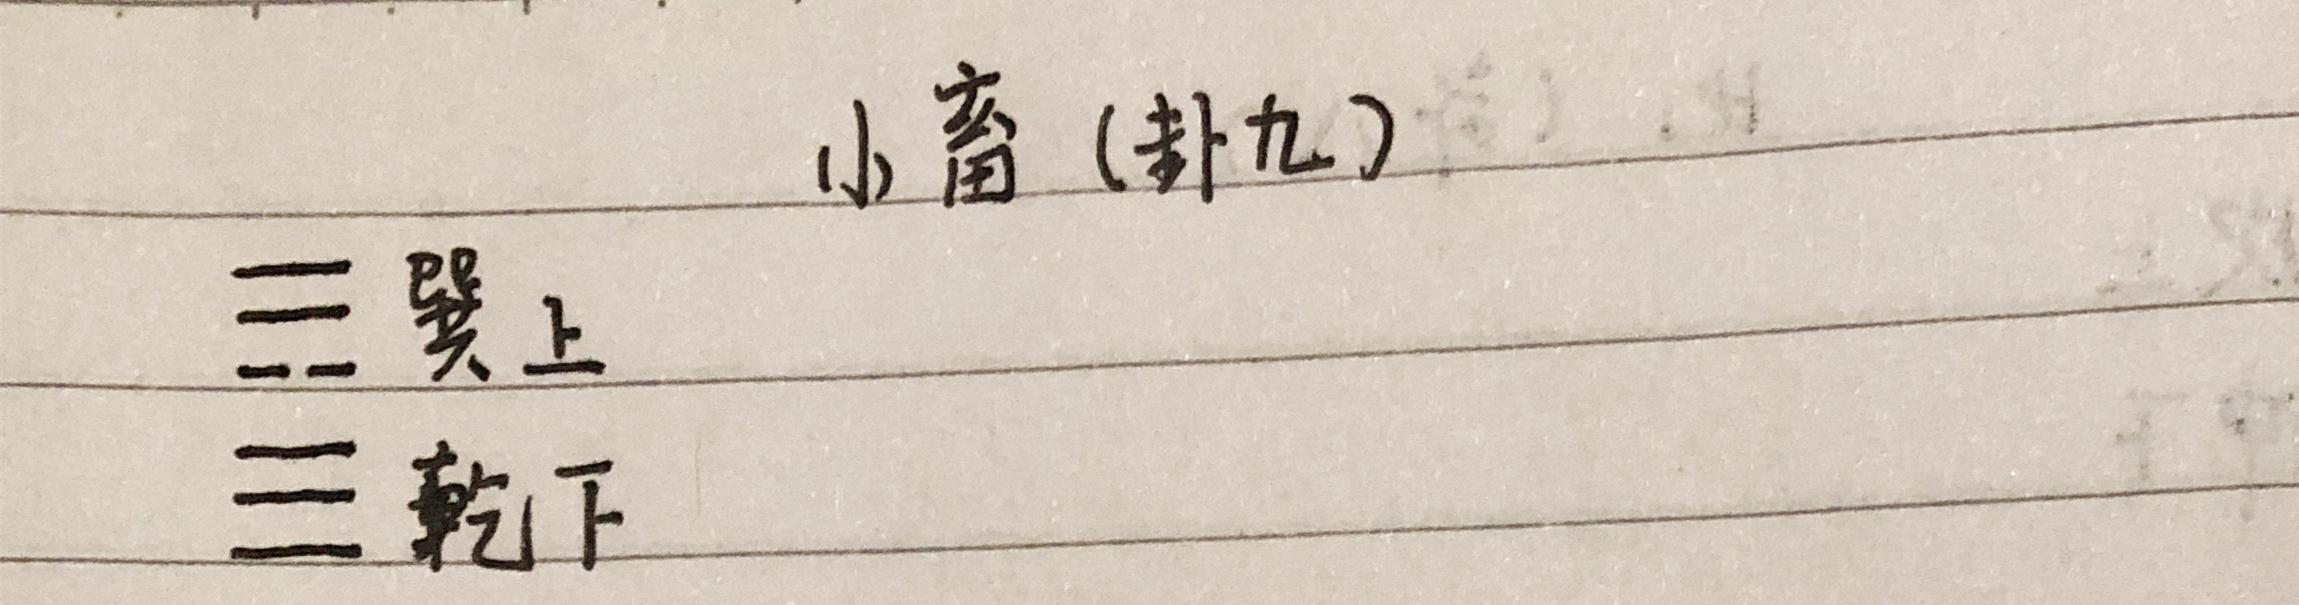 小畜（卦九）
☴ 巽上
☰ 乾下